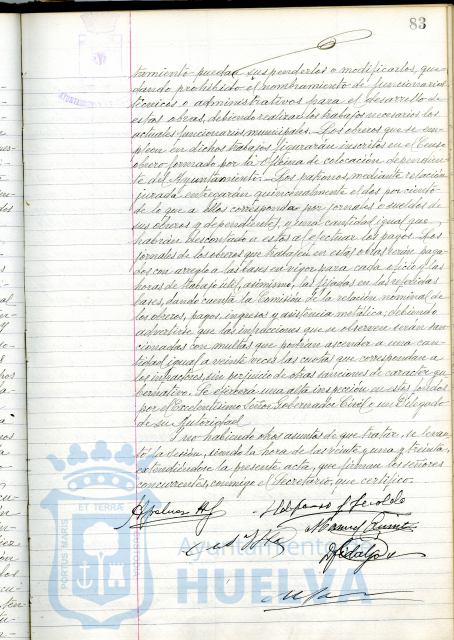 83
tamiento puedan suspenderlos o modificarlos, que-
dando prohibido el nombramiento de funcionarios
técnicos o administrativos para el desarrollo de
estas obras, debiendo realizar los trabajos necesarios los
actuales funcionarios municipales. Los obreros que se em-
pleen en dichos trabajos figurarán inscritos en el Censo
obrero formado por la Oficina de colocación dependien-
te del Ayuntamiento. Los patronos, mediante relación
jurada entregarán quincenalmente el dos por ciento
de lo que a ellos corresponda por jornales o sueldos de
sus obreros y dependientes, y una cantidad igual que
habrán descontado a estos al efectuar los pagos. Los
jornales de los obreros que trabajen en estas obras serán paga-
dos con arreglo a las bases en vigor para cada oficio y las
horas de trabajo útil, asimismo, las fijadas en las referidas
bases, dando cuenta la Comisión de la relación nominal de
los obreros, pagos, ingresos y asistencia metálica; debiendo
advertirse que las infracciones que se observen serán san-
cionadas con multas que podrán ascender a una can-
tidad igual a veinte veces las cuotas que correspondan a
los infractores, sin perjuicio de otras sanciones de carácter gu-
bernativo. Se ejercerá una alta inspección en estos fondos
por el Excelentísimo Señor Gobernador Civil o un Delegado
de su Autoridad.
Y no habiendo otros asuntos de que tratar, se levan-
tó la sesión, siendo la hora de las veinte y una y treinta,
extendiéndose la presente acta, que firman los señores
concurrentes, conmigo el Secretario, que certifico.
PORTUS MARIS
ET TERRÆ
CUSTODIA
Ayuntamiento
HUELVA